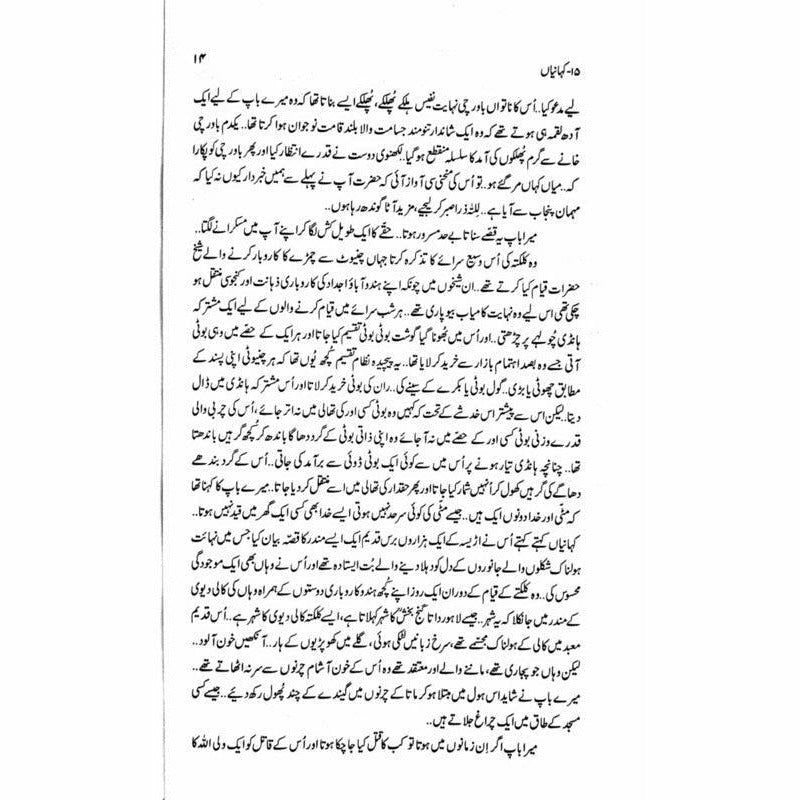 ۱۵-کہانیاں ۱۴
لیے مدعو کیا۔۔اُس کا ناتواں باورچی نہایت نفیس ہلکے پُھلکے، پُھلکے ایسے بناتا تھا کہ وہ میرے باپ کے لیے ایک
آدھ لقمہ ہی ہوتے تھے کہ وہ ایک شاندار تنومند جسامت والا بلند قامت نوجوان ہوا کرتا تھا۔۔یکدم باورچی
خانے سے گرم پُھلکوں کی آمد کا سلسلہ منقطع ہوگیا۔لکھنوی دوست نے قدرے انتظار کیا اور پھر باورچی کو پکارا
کہ۔۔میاں کہاں مر گئے ہو۔۔تو اُس کی منحنی سی آواز آئی کہ حضرت آپ نے پہلے سے ہمیں خبردار کیوں نہ کیا کہ
مہمان پنجاب سے آیا ہے۔۔للہ ذرا صبر کر لیجیے، مزید آٹا گوندھ رہا ہوں۔۔
میرا باپ یہ قصے سناتا بے حد مسرور ہوتا۔۔ حقّے کا ایک طویل کش لگا کر اپنے آپ میں مسکرانے لگتا۔۔
وہ کلکتہ کی اُس وسیع سرائے کا تذکرہ کرتا جہاں چنیوٹ سے چمڑے کا کاروبار کرنے والے شیخ
حضرات قیام کیا کرتے تھے۔۔ان شیخوں میں چونکہ اپنے ہندو آباؤ اجداد کی کاروباری ذہانت اور کنجوسی منتقل ہو
چکی تھی اس لیے وہ نہایت کامیاب بیوپاری تھے۔۔ہر شب سرائے میں قیام کرنے والوں کے لیے ایک مشترکہ
ہانڈی چُولہے پر چڑھتی۔۔اور اُس میں بھُونا گیا گوشت بوٹی بوٹی تقسیم کیا جاتا اور ہر ایک کے حصّے میں وہی بوٹی
آتی جسے وہ بصد اہتمام بازار سے خرید کر لایا تھا۔۔یہ پیچیدہ نظامِ تقسیم کُچھ یُوں تھا کہ ہر چنیوٹی اپنی پسند کے
مطابق چھوٹی یا بڑی۔گول بوٹی یا بکرے کے سینے کی۔۔ران کی بوٹی خرید کر لاتا اور اُس مشترکہ ہانڈی میں ڈال
دیتا۔۔لیکن اس سے پیشتر اس خدشے کے تحت کہ کہیں وہ بوٹی کسی اور کی تھالی میں نہ اتر جائے، اُس کی چربی والی
قدرے وزنی بوٹی کسی اور کے حصّے میں نہ آ جائے وہ اپنی ذاتی بوٹی کے گرد دھاگا باندھ کر کُچھ گرہیں باندھتا
تھا۔۔ چنانچہ ہانڈی تیار ہونے پر اُس میں سے کوئی ایک بوٹی ڈوئی سے برآمد کی جاتی۔۔اُس کے گرد بندھے
دھاگے کی گرہیں کھول کر اُنہیں شمار کیا جاتا اور پھر حقدار کی تھالی میں اسے منتقل کر دیا جاتا۔۔میرے باپ کا کہنا تھا
کہ مٹی اور خدا دونوں ایک ہیں۔۔جیسے مٹی کی کوئی سرحد نہیں ہوتی ایسے خدا بھی کسی ایک گھر میں قید نہیں ہوتا۔۔
کہانیاں کہتے کہتے اُس نے اڑیسہ کے ایک ہزاروں برس قدیم ایک ایسے مندر کا قصّہ بیان کیا جس میں نہایت
ہولناک شکلوں والے جانوروں کے دل کو دہلا دینے والے بُت ایستادہ تھے اور اُس نے وہاں بھی ایک موجودگی
محسوس کی۔۔وہ کلکتے کے قیام کے دوران ایک روز اپنے کُچھ ہندو کاروباری دوستوں کے ہمراہ وہاں کی کالی دیوی
کے مندر میں جا نکلا کہ یہ شہر۔جیسے لاہور داتا گنج بخش کا شہر کہلاتا ہے، ایسے کلکتہ کالی دیوی کا شہر ہے۔۔اُس قدیم
معبد میں کالی کے ہولناک مجسمے تھے، سرخ زبانیں لٹکی ہوئی، گلے میں کھوپڑیوں کے ہار۔۔آنکھیں خون آلود۔۔
لیکن وہاں جو پجاری تھے، ماننے والے اور معتقد تھے وہ اُس کے خون آشام چرنوں سے سر نہ اٹھاتے تھے۔۔
میرے باپ نے شاید اس ہول میں مبتلا ہو کر ماتا کے چرنوں میں گیندے کے چند پُھول رکھ دیئے۔۔جیسے کسی
مسجد کے طاق میں ایک چراغ جلاتے ہیں۔۔
میرا باپ اگر اِن زمانوں میں ہوتا تو کب کا قتل کیا جا چکا ہوتا اور اُس کے قاتل کو ایک ولی اللہ کا